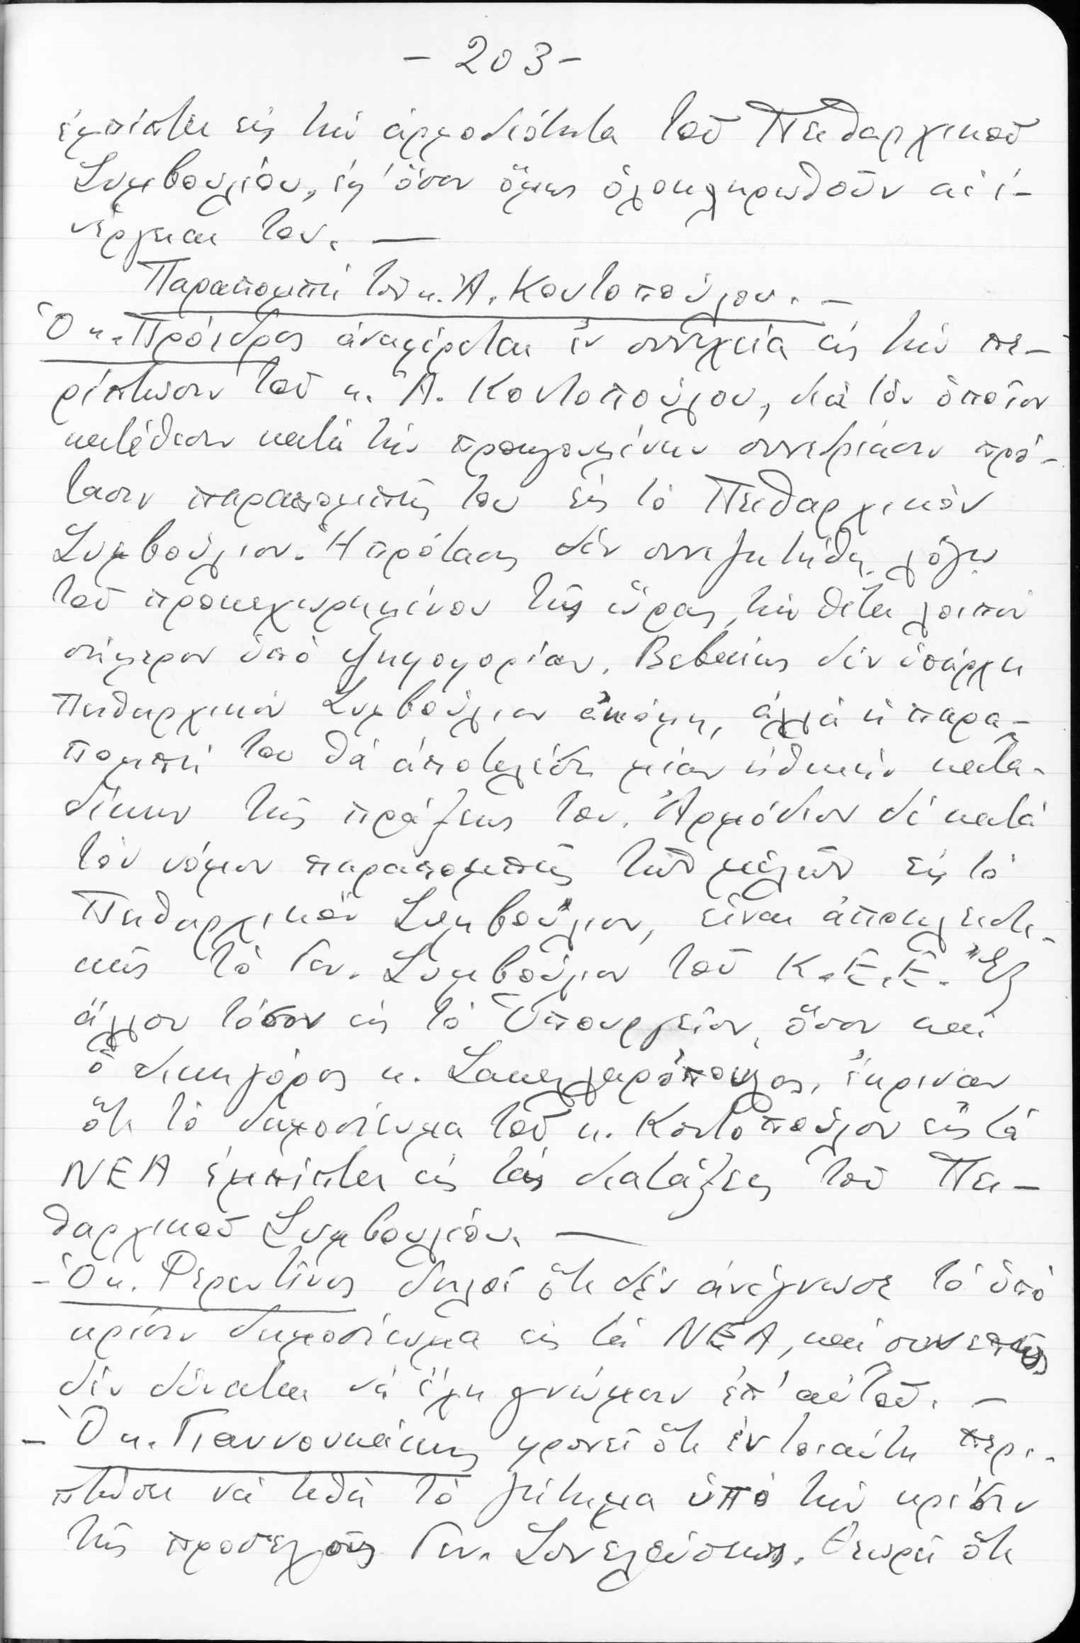 - 203 -
ἐμπίπτει εἰς τὴν ἁρμοδιότητα τοῦ Πειθαρχικοῦ
Συμβουλίου, ἐφ' ὅσον ὅμως ὁλοκληρωθοῦν αἱ ἐ-
νέργειαι του. —
Παραπομπή τοῦ κ. Ἀ. Κοντοπούλου. —
Ὁ κ. Πρόεδρος ἀναφέρεται ἐν συνεχείᾳ εἰς τὴν πε-
ρίπτωσιν τοῦ κ. Ἀ. Κοντοπούλου, διὰ τὸν ὁποῖον
κατέθεσεν κατὰ τὴν προηγουμένην συνεδρίασιν πρό-
τασιν παραπομπῆς του εἰς τὸ Πειθαρχικὸν
Συμβούλιον. Ἡ πρότασις δὲν συνεζητήθη λόγῳ
τοῦ προκεχωρημένου τῆς ὥρας, τὴν θέτει λοιπὸν
σήμερον ὑπὸ ψηφοφορίαν. Βεβαίως δὲν ὑπάρχει
Πειθαρχικὸν Συμβούλιον ἀκόμη, ἀλλὰ ἡ παρα-
πομπή του θὰ ἀποτελέσῃ μίαν ἠθικὴν κατα-
δίκην τῆς πράξεώς του. Ἁρμόδιον δὲ κατὰ
τὸν νόμον παραπομπῆς τῶν μελῶν εἰς τὸ
Πειθαρχικὸν Συμβούλιον, εἶναι ἀποκλειστι-
κῶς τὸ Γεν. Συμβούλιον τοῦ Κ.Ε.Ε. Ἐξ
ἄλλου τόσον εἰς τὸ Ὑπουργεῖον, ὅσον καὶ
ὁ δικηγόρος κ. Σακελλαρόπουλος, ἔκριναν
ὅτι τὸ δημοσίευμα τοῦ κ. Κοντοπούλου εἰς τὰ
ΝΕΑ ἐμπίπτει εἰς τὰς διατάξεις τοῦ Πει-
θαρχικοῦ Συμβουλίου. —
- Ὁ κ. Φερεντίνος δηλοῖ ὅτι δὲν ἀνέγνωσε τὸ ὑπὸ
κρίσιν δημοσίευμα εἰς τὰ ΝΕΑ, καὶ συνεπῶς
δὲν δύναται νὰ ἔχῃ γνώμην ἐπ' αὐτοῦ. —
- Ὁ κ. Γιαννουκάκης φρονεῖ ὅτι ἐν τοιαύτῃ περι-
πτώσει νὰ τεθῇ τὸ ζήτημα ὑπὸ τὴν κρίσιν
τῆς προσεχοῦς Γεν. Συνελεύσεως. Θεωρεῖ ὅτι